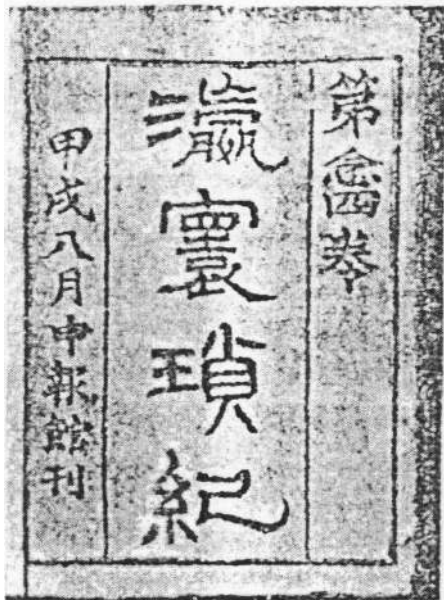 第念四卷
瀛寰瑣紀
甲戌八月申報館刊